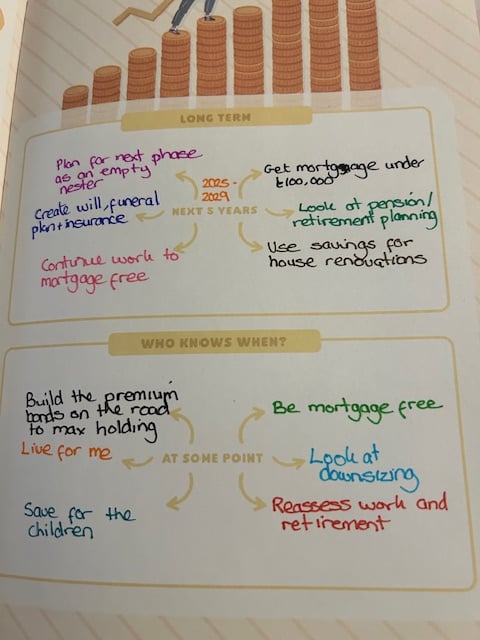 LONG TERM
Plan for next phase
as an empty
nester
2025-
2029
Get mortgage under
£100,000
Create will, funeral
plan + insurance
NEXT 5 YEARS
Look at pension/
retirement planning
Continue work to
mortgage free
Use savings for
house renovations
WHO KNOWS WHEN?
Build the premium
bonds on the road
to max holding
Be mortgage free
Live for me
AT SOME POINT
Look at
downsizing
Save for the
children
Reassess work and
retirement